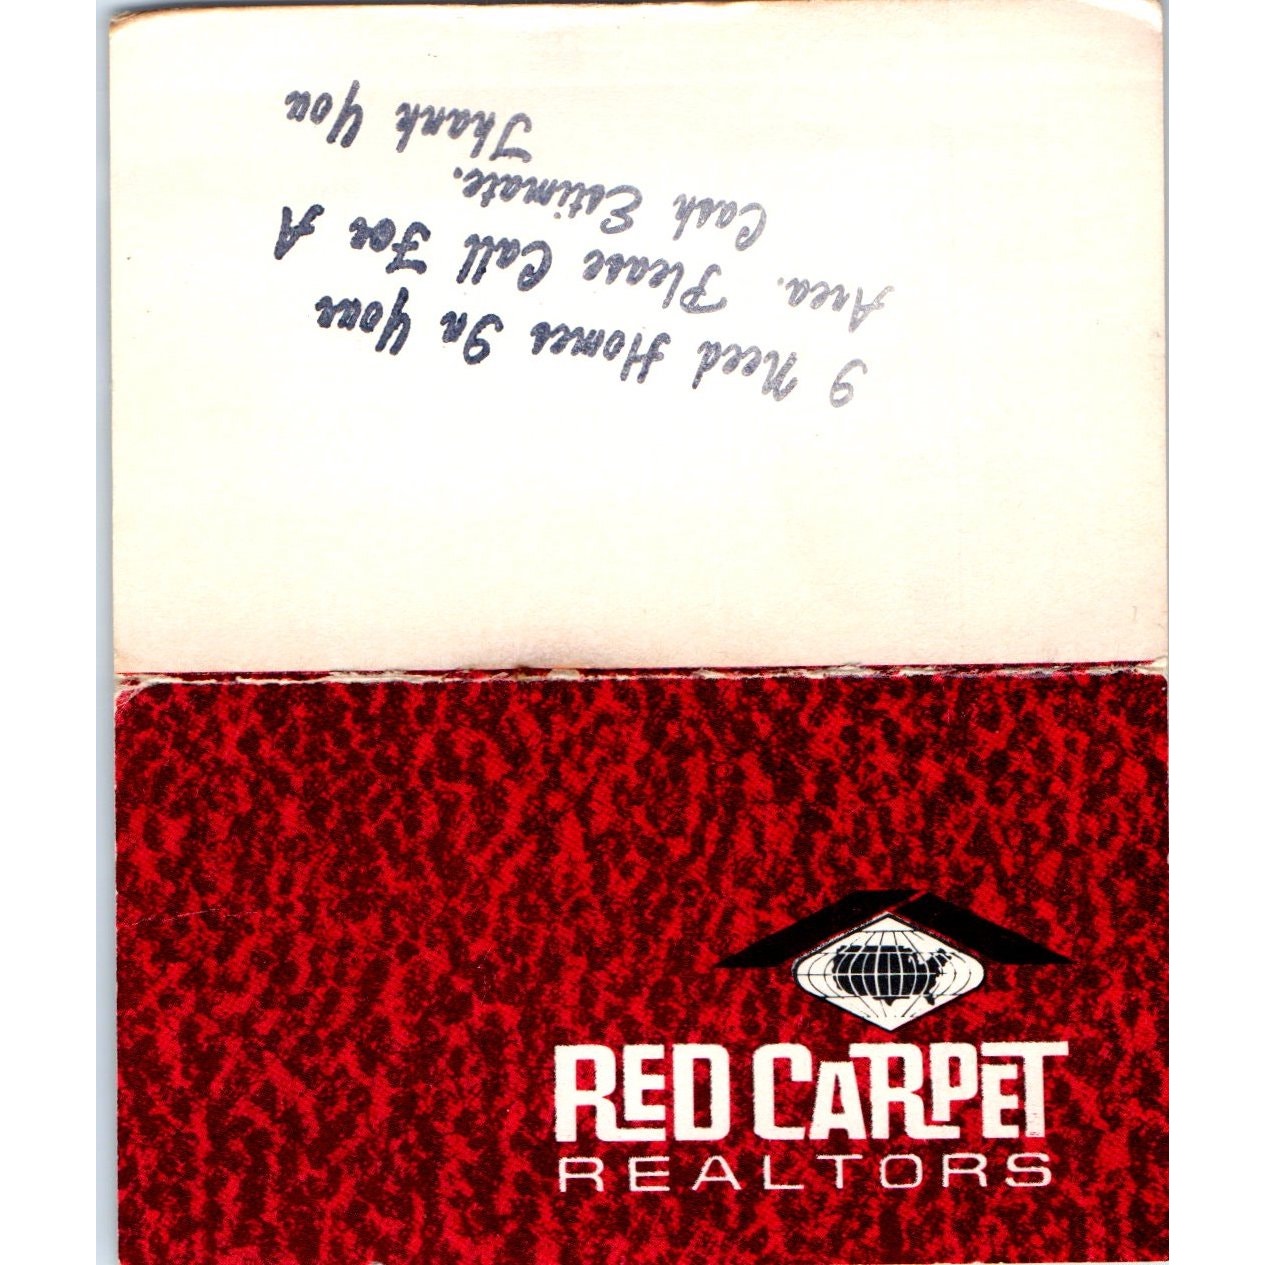 I Need Homes In Your
Area. Please Call For A
Cash Estimate.
Thank You
RED CARPET
REALTORS